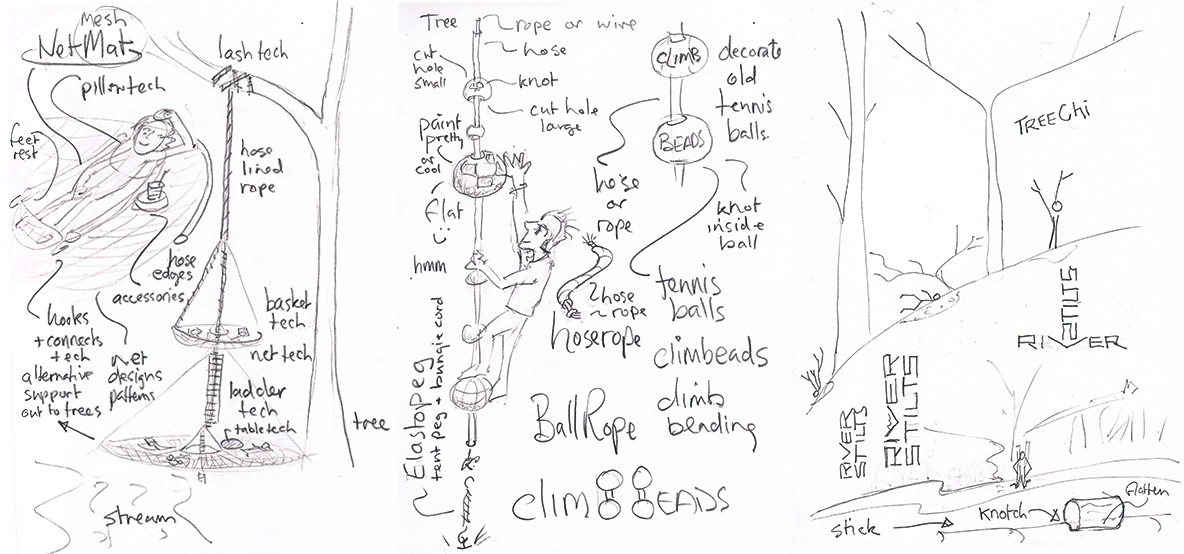 Mesh
NetMats
pillowtech
feet
rest
lashtech
hose
lined
rope
hose
edges
accessories
basket
tech
net tech
hooks
+ connects
tech
alternative
support
out to trees
net
designs
patterns
ladder
tech
tabletech
tree
stream
Tree
rope or wire
hose
cut
hole
small
knot
cut hole
large
paint
pretty
or
cool
flat
hmm
CLIMB
BEADS
decorate
old
tennis
balls.
hose
or
rope
knot
inside
ball
hose
rope
hoserope
tennis
balls
climbeads
climb
beading
BallRope
Elastopeg
tent peg + bungie cord
climBEADS
TREEChi
RIVER
STILTS
RIVER
STILTS
RIVER
STILTS
stick
knotch
flatten